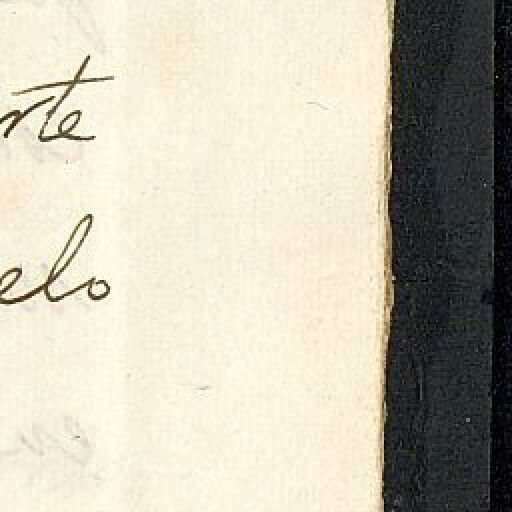 rte
elo